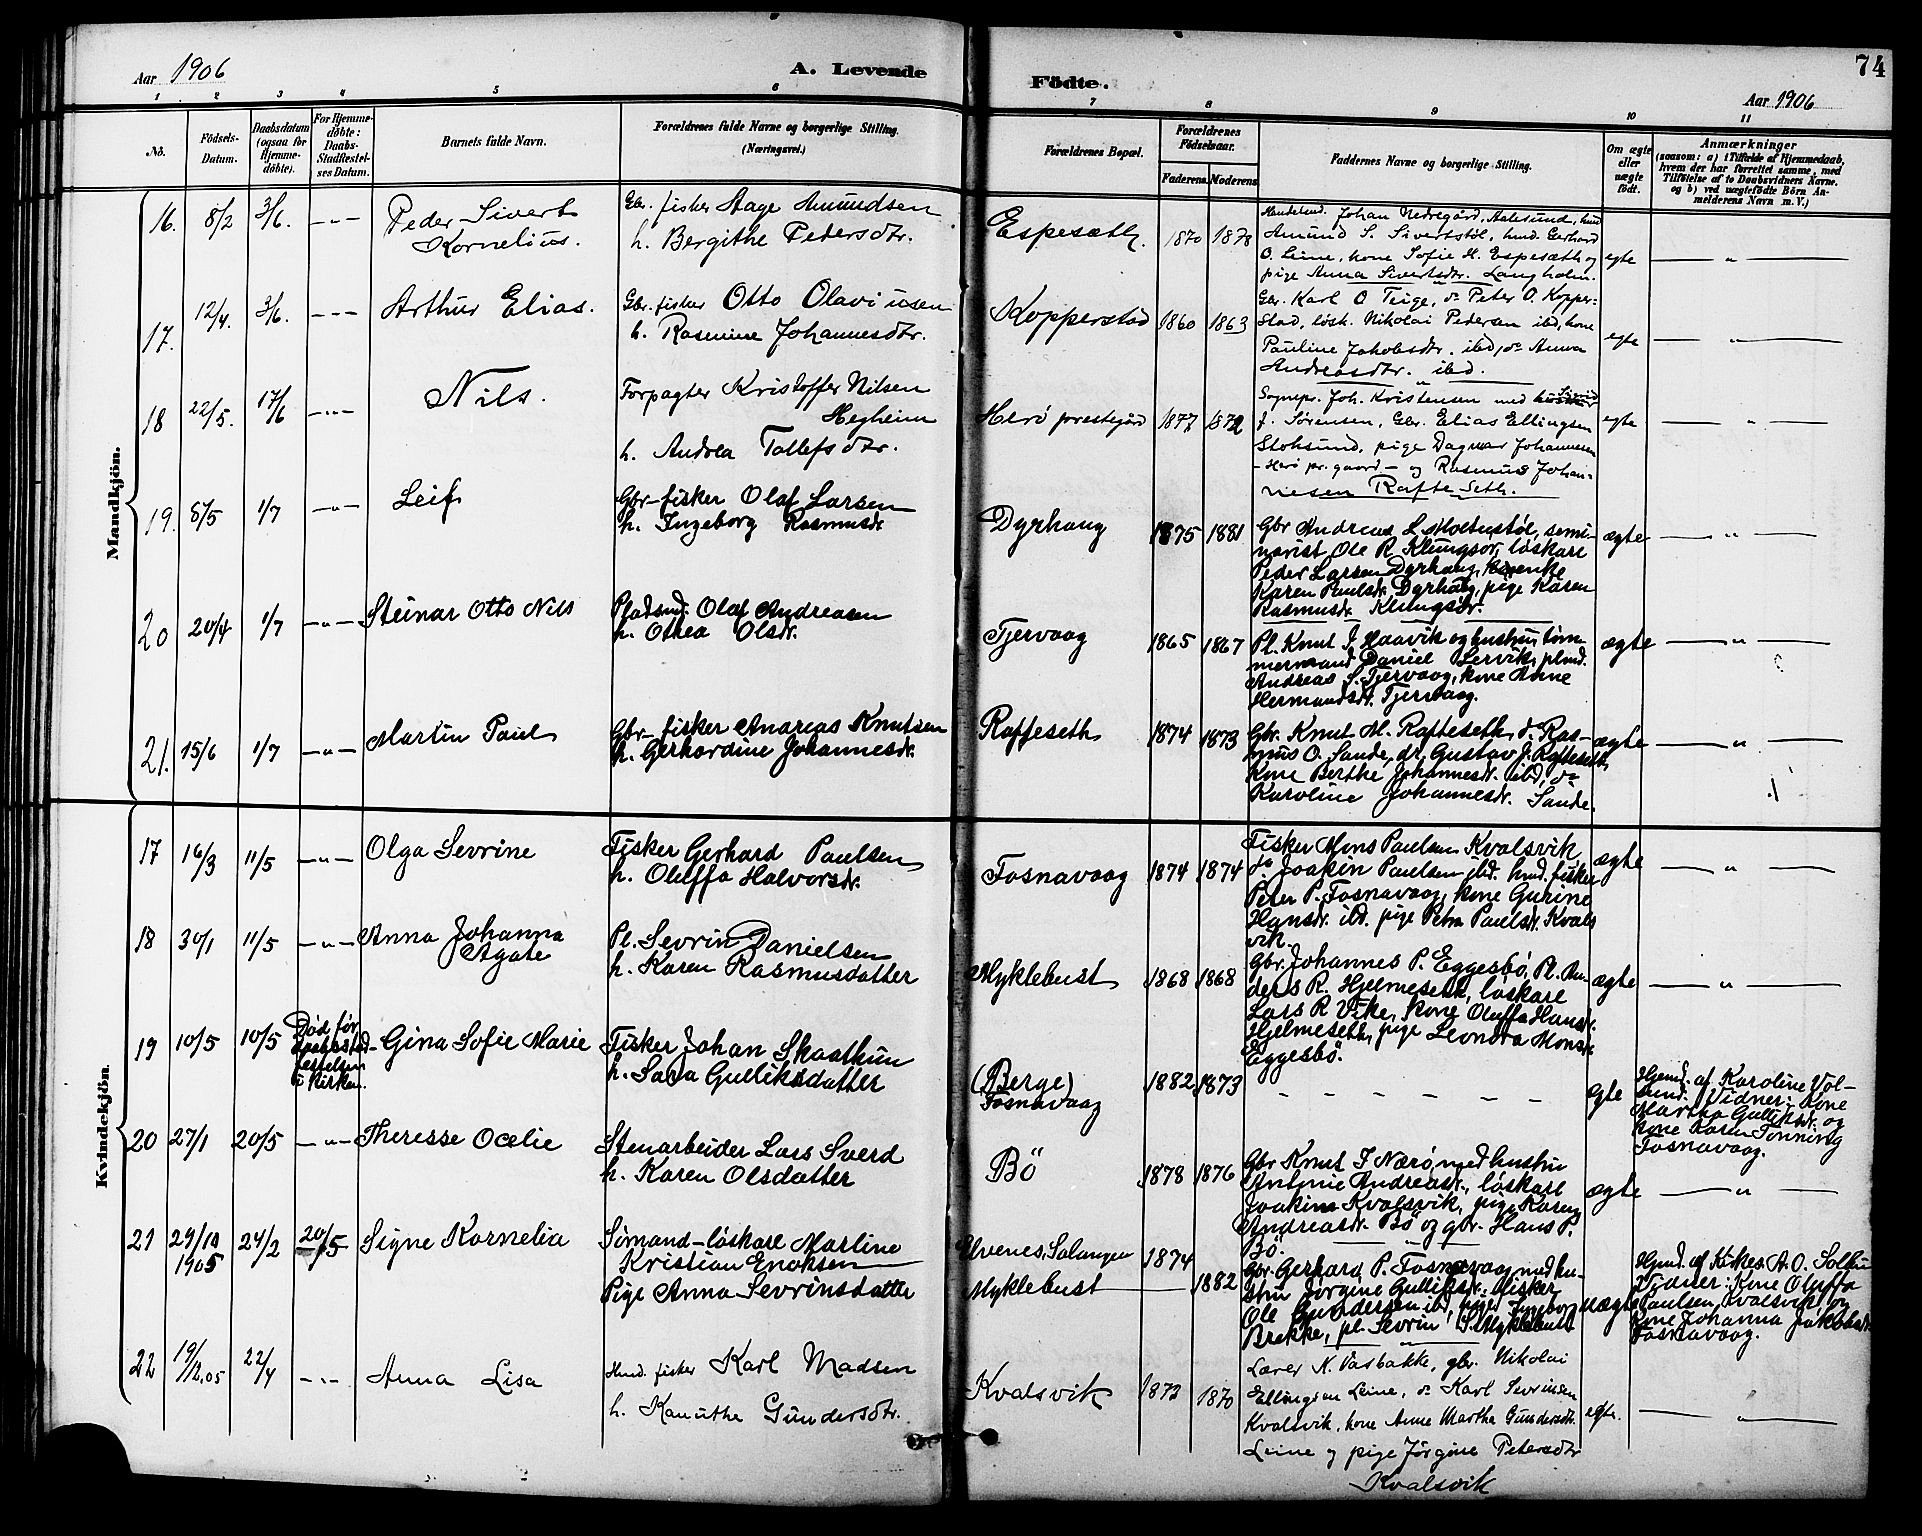 Aar 1906
A. Levende
Födte.
Aar 1906
74
1 2 3 4 5 6 7 8 9 10 11
No.
Födsels-
Datum.
Daabsdatum
(ogsaa for
Hjemme-
döbte).
For Hjemme-
döbte:
Daabs-
Stadfestel-
ses Datum.
Barnets fulde Navn.
Forældrenes fulde Navne og borgerlige Stilling.
(Næringsvei.)
Forældrenes Bopæl.
Forældrenes
Födselsaar.
Faderens. Moderens.
Faddernes Navne og borgerlige Stilling.
Om ægte
eller
uægte
födt.
Anmærkninger
(saasom: a) i Tilfælde af Hjemmedaab,
hvem der har forrettet samme, med
Tilföielse af to Daabsvidners Navne,
og b) ved uægtefödte Börn An-
melderens Navn m. V.)
Mandkjön.
16. 8/2 3/6. – " –
Peder Sivert
Kornelius.
Gbr. fisker Aage Amundsen
h. Bergithe Pedersdtr.
Espesæth. 1870 1878
Johan Nedregård, Aalesund,
Amund S. Sivertstöl, hmd. Gerhard
O. Leine, kone Sofie H. Espesæth og
pige Anna Sivertsdtr. Langholm.
egte — " —
17. 12/4. 3/6. – – –
Arthur Elias.
Gbr. fisker Otto Olaviusen
h. Rasmine Johannesdtr.
Kopperstad 1860 1863
Gbr. Karl O Teige, do Peter O. Kopper-
stad, løsk. Nikolai Pedersen ibd, kone
Pauline Jakobsdtr. ibd, do Anna
Andreasdtr. ibd.
egte — " —
18 22/5. 17/6 – " –
Nils.
Forpagter Kristoffer Nilsen
Hegheim
h. Andrea Tollefsdtr.
Herö prestegård 1877 1872
Sognepr. Joh. Kristensen med
J. Sørensen, Gbr. Elias Ellingsen
Stoksund, pige Dagmar Johannesen
– Herö pr. gaard – og Rasmus Johan-
nesen Rafteseth.
egte — " —
19. 8/5 1/7 – " –
Leif
Gbr–fisker Olaf Larsen
h. Ingeborg Rasmusdr.
Dyrhaug 1875 1881
Gbr Andreas L. Moltustöl, semi-
narist Ole R. Klungsör, løskare
Peder Larsen Dyrhaug, enke
Karen Paulsdr. Dyrhaug, pige Karen
Rasmusdr. Klungsör.
ægte — " —
20 20/4 1/7 – " –
Steinar Otto Nils
Pladsmd. Olaf Andreasen
h. Othea Olsdr.
Tjervaag 1865 1867
Pl. Knut J. Haavik og hustru, töm-
mermand Daniel Lervik, plmd.
Andreas S. Tjervaag, kone Anne
Hermansdr. Tjervaag.
ægte — " —
21. 15/6 1/7 – " –
Martin Paul
Gbr–fisker Andreas Knutsen
h. Gerhardine Johannesdr.
Rafteseth 1874 1873
Gbr. Knut M. Rafteseth, do Ras-
mus O. Sande, dr. Gustav J. Rafteseth
Kone Berthe Johannesdr. ibd, do
Karoline Johannesdr. Sande.
ægte — " —
Kvindekjön.
17 16/3 11/5 – " –
Olga Sevrine
Fisker Gerhard Paulsen
h. Oluffa Halvorsdr.
Fosnavaag 1874 1874
Fisker Mons Paulsen Kvalsvik
do Joakin Paulsen ibd. hmd. fisker
Peter P. Fosnavaag, kone Gurine
Hansdr. ibd. pige Petra Paulsdr. Kvals
vik.
ægte — " —
18 30/1 11/5 – " –
Anna Johanna
Agate
Pl. Sevrin Danielsen
h. Karen Rasmusdatter
Myklebust 1868 1868
Gbr. Johannes P. Eggesbö, Pl. An-
ders R. Hjelmeseth, løskare
Lars R Vike, kone Oluffa Hansdr.
Hjelmeseth, pige Leondra Monsdr
Eggesbö.
ægte — " —
19 10/5 10/5
Död før
daabsstad-
festelsen
i kirken.
Gina Sofie Marie
Fisker Johan Skaathun
h. Sara Gulliksdatter
(Berge)
Fosnavaag
1882 1873
– – – – – –
egte
Hjemd. af Karoline Vol-
sund. Vidner: Kone
Martha Gulliksdr. og
kone Karen Tonning
Fosnavaag.
20 27/1 20/5 – " –
Theresse Ocelie
Stenarbeider Lars Sverd
h. Karen Olsdatter
Bö 1878 1876
Gbr Knut J Nærö, med hustru
Antonie Andreasdr., løskare
Joakim Kvalsvik, pige Karen
Andreasdr. Bö og gbr. Hans P.
Bö.
ægte — " —
21 29/10
1905
24/2 20/5
Signe Kornelia
Sömand–løskare Martine
Kristian Enoksen
Pige Anna Sevrinsdatter
Elvenes, Salangen 1874
Myklebust — 1882
Gbr. Gerhard P. Fosnavaag med hu-
stru Jörgine Gulliksdr. fisker
Ole Gundersen ibd, Ingeborg
Brekke, pl. Sevrin S. Myklebust
uægte
Hjmd. af A. O. Solbu
Vidner: Kone Oluffa
Paulsen, Kvalsvik, og
Kone Johanna Jakobsdr.
Fosnavaag.
22 19/12.05 22/4 – " –
Anna Lisa
Hmd. fisker Karl Madsen
h. Kanutha Gundersdtr.
Kvalsvik 1873 1870
Lærer N. Vasbakke, gbr. Nikolai
Ellingsen Leine, do Karl Sevrinsen
Kvalsvik, kone Anne Martha Gundersdtr.
Leine og pige Jørgine Petersdtr
Kvalsvik
egte. — " —